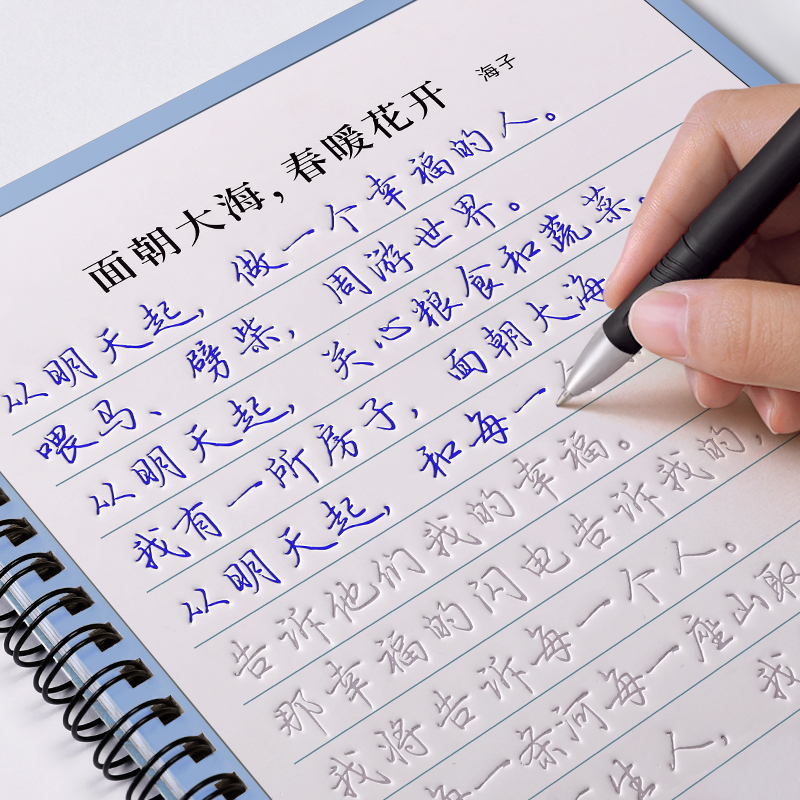 面朝大海,春暖花开 海子
从明天起,做一个幸福的人。
喂马、劈柴,周游世界。
从明天起,关心粮食和蔬菜。
我有一所房子,面朝大海
从明天起,和每一
告诉他们我的幸福。
那幸福的闪电告诉我的,
我将告诉每一个人。
每一条河每一座山取
生人,我